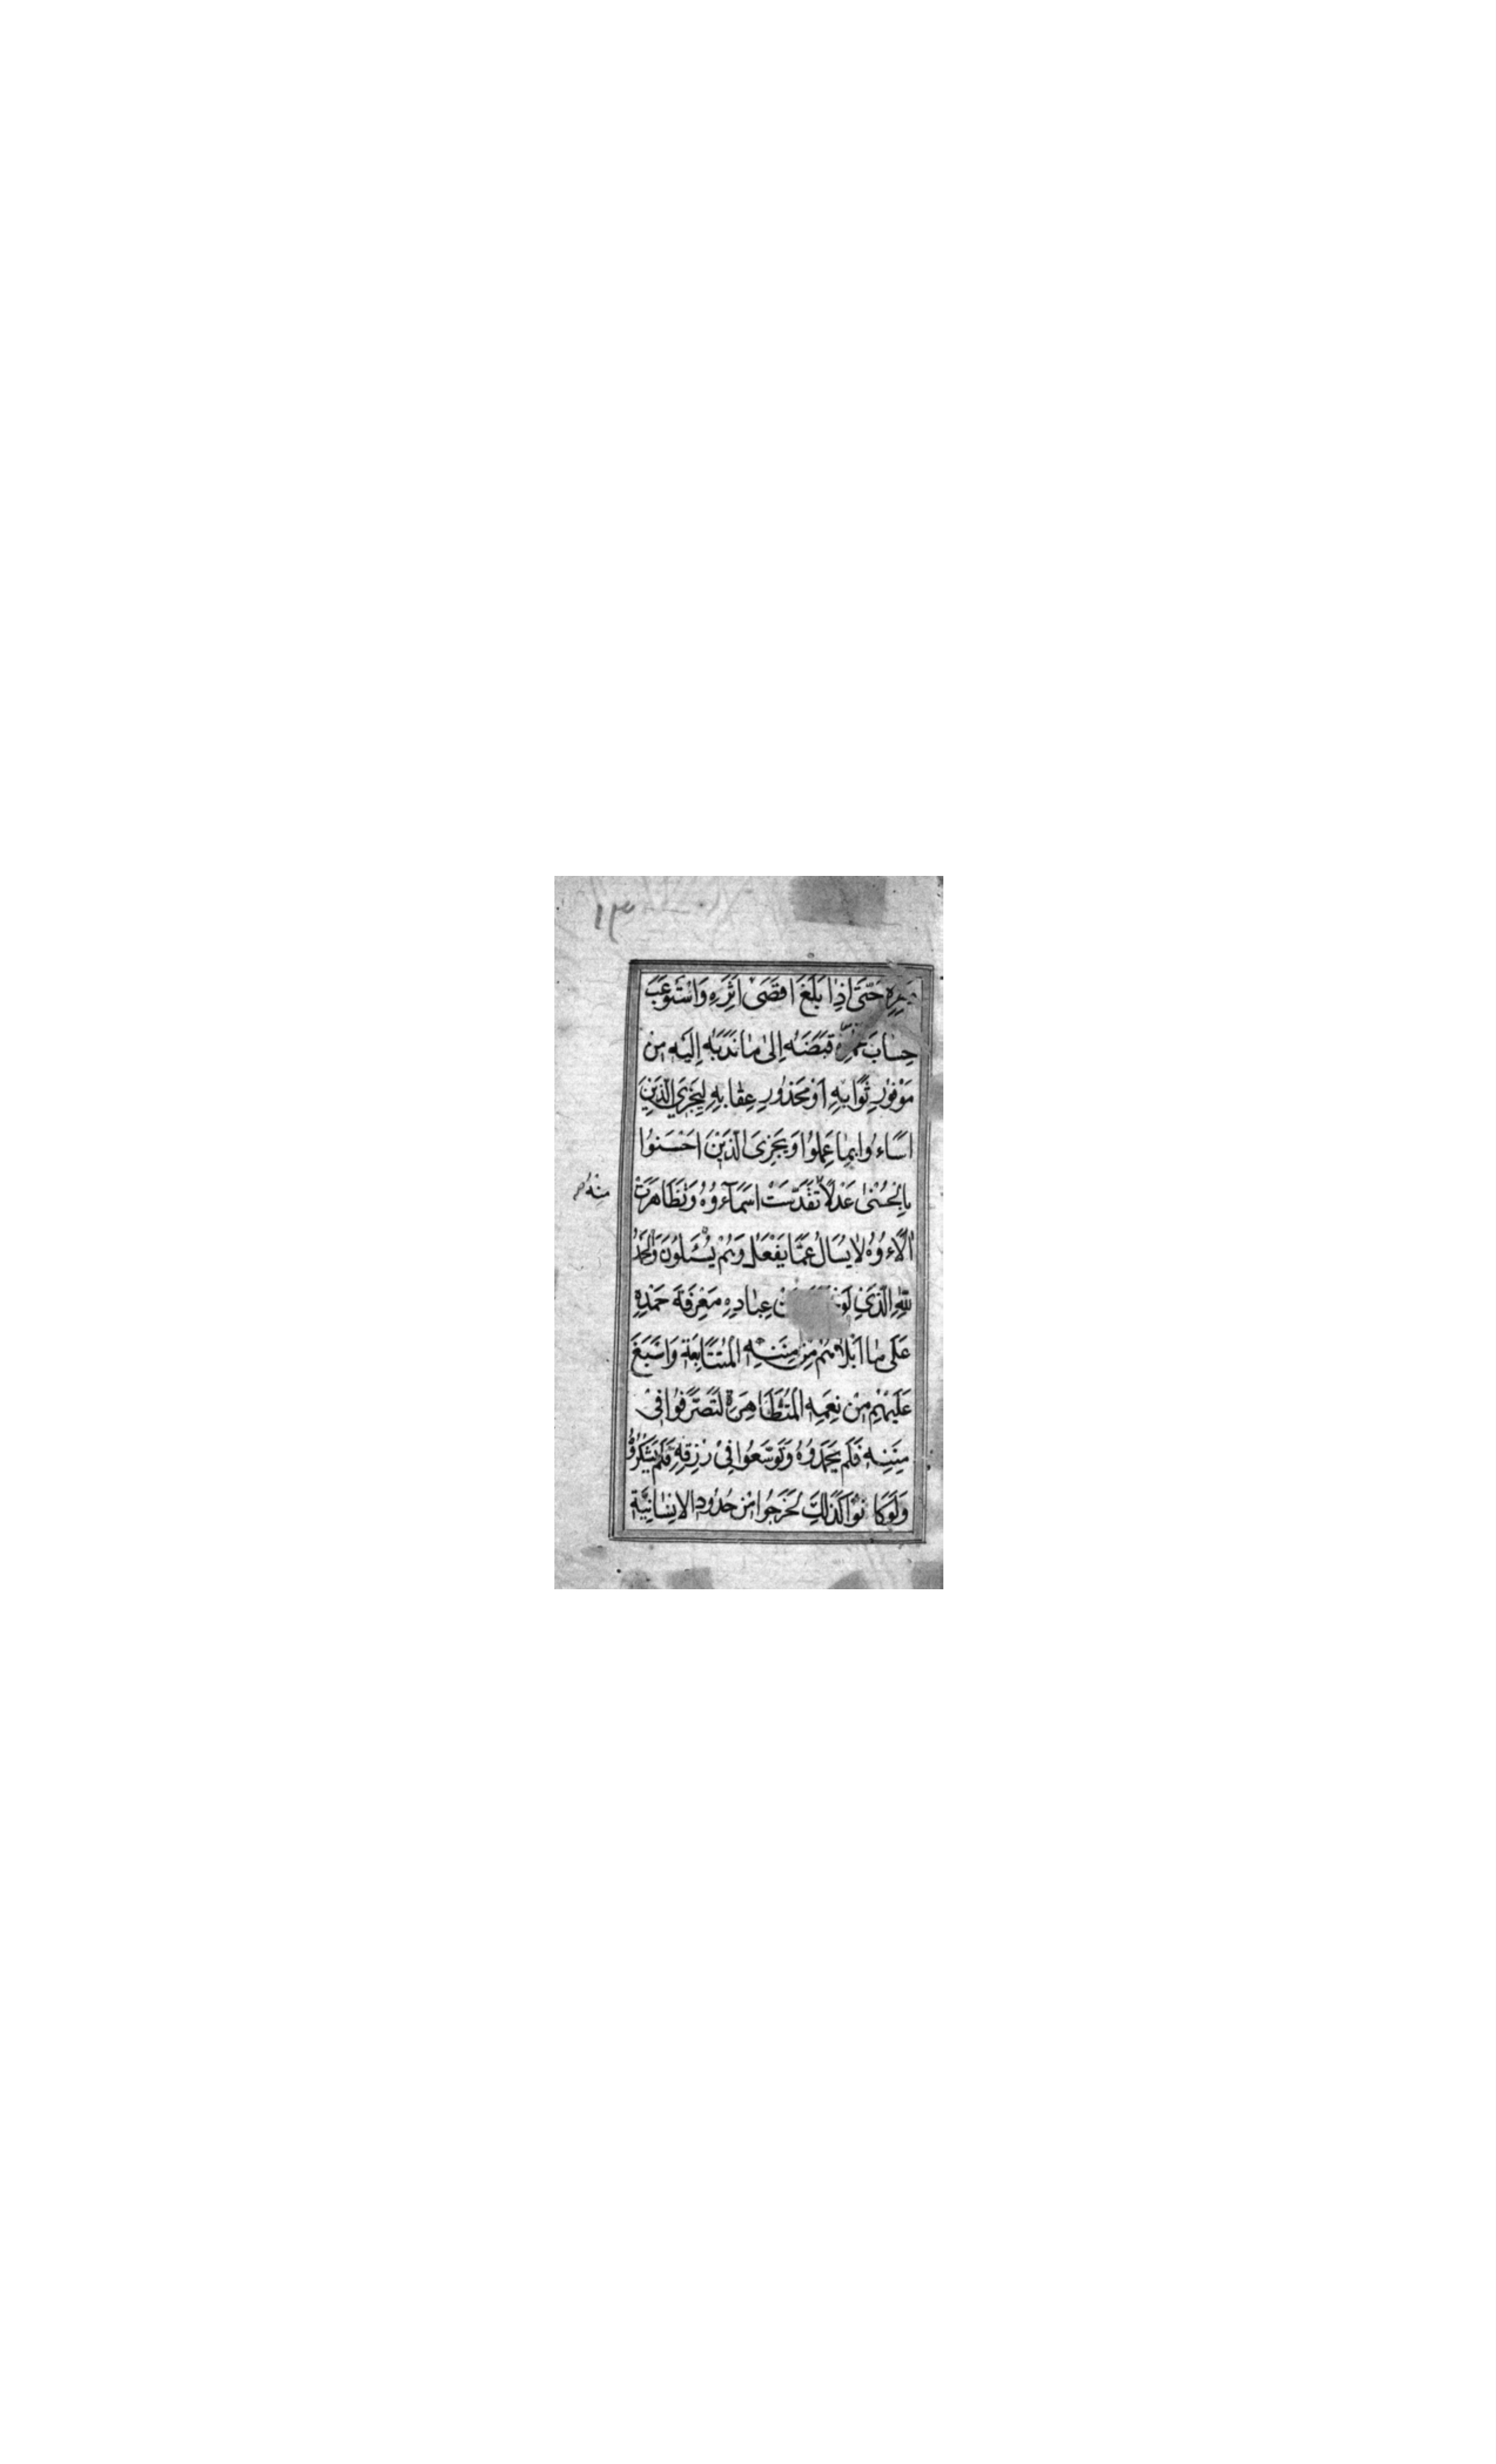 ١٣
حَتّى اِذا بَلَغَ اَقْصَى اَثَرِهِ وَاسْتَوْعَبَ
حِسابَ عُمُرِهِ قَبَضَهُ اِلىٰ ما نَدَبَهُ اِلَيْهِ مِنْ
مَوْفُورِ ثَوابِهِ اَوْ مَحْذُورِ عِقابِهِ لِيَجْزِيَ الَّذينَ
اَساءُوا بِما عَمِلُوا وَيَجْزِىَ الَّذينَ اَحْسَنُوا
بِالْحُسْنىٰ عَدْلاً تَقَدَّسَتْ اَسْمآءُوهُ وَتَظاهَرَتْ
منه
الٓاءُوهُ لا يُسْاَلُ عَمّا يَفْعَلُ وَهُمْ يُسْئَلُونَ وَالْحَمْدُ
لِلّٰهِ الَّذي لَوْ عِبادِهِ مَعْرِفَةَ حَمْدِهِ
عَلى ما اَبْلاهُمْ مِنْ مِنَنِهِ الْمُتَتابِعَةِ وَاَسْبَغَ
عَلَيْهِمْ مِنْ نِعَمِهِ الْمُتَظاهِرَةِ لَتَصَرَّفُوا في
مِنَنِهِ فَلَمْ يَحْمَدُوهُ وَتَوَسَّعُوا في رِزْقِهِ فَلَمْ يَشْكُرُوهُ
وَلَوْ كانُوا كَذٰلِكَ لَخَرَجُوا مِنْ حُدُودِ الاِنْسانِيَّةِ